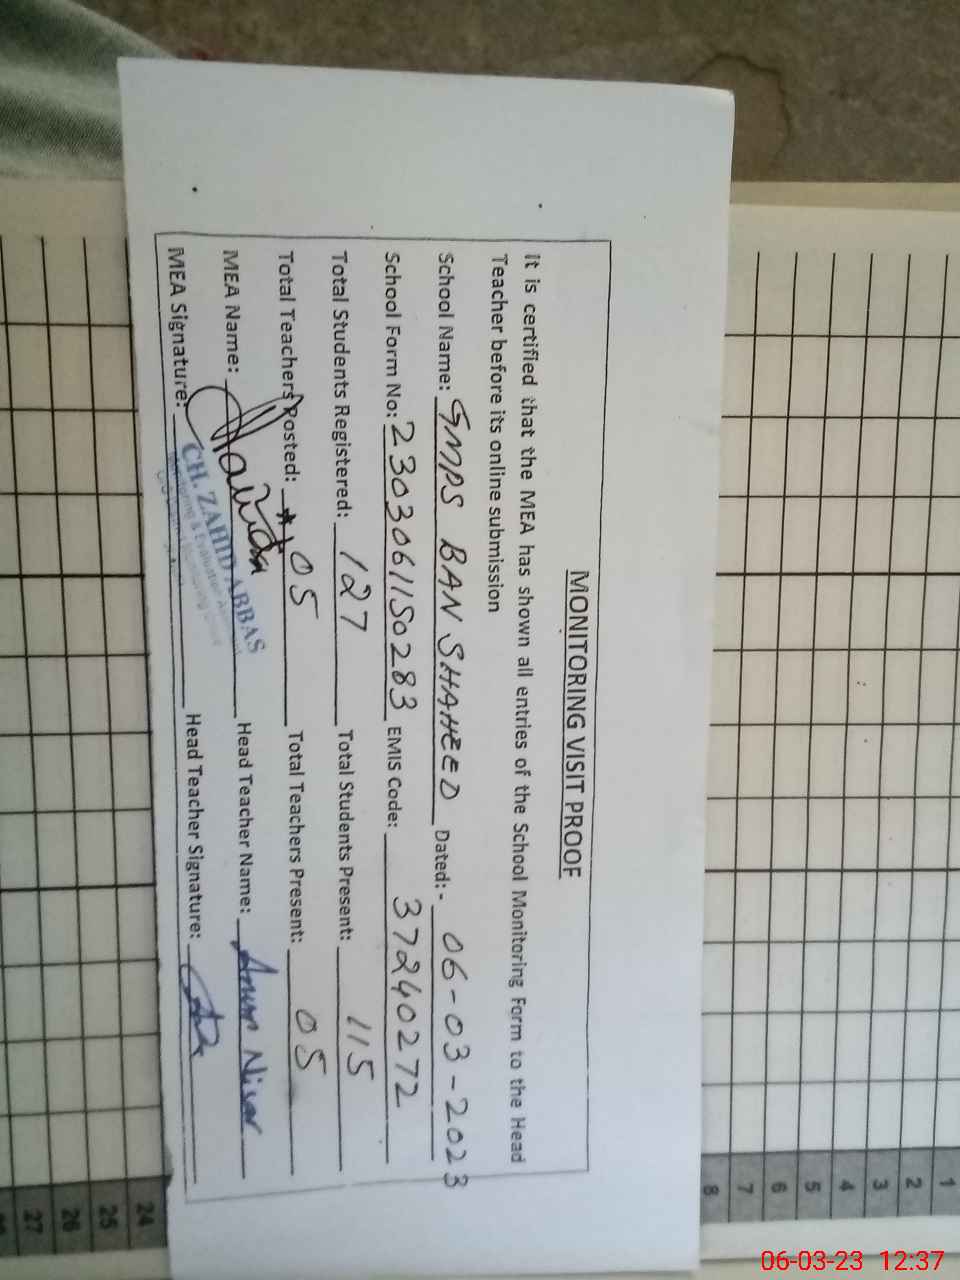 MONITORING VISIT PROOF
It is certified that the MEA has shown all entries of the School Monitoring Form to the Head
Teacher before its online submission
School Name: GMPS BAN SHAHEED Dated:- 06-03-2023
School Form No: 2303061150283 EMIS Code: 37240272
Total Students Registered: 127 Total Students Present: 115
Total Teachers Posted: 05 Total Teachers Present: 05
MEA Name: Head Teacher Name: Anum Nisar
MEA Signature: Head Teacher Signature:
CH. ZAHID ABBAS
Monitoring & Evaluation
1
2
3
4
5
6
7
8
24
25
26
27
06-03-23 12:37